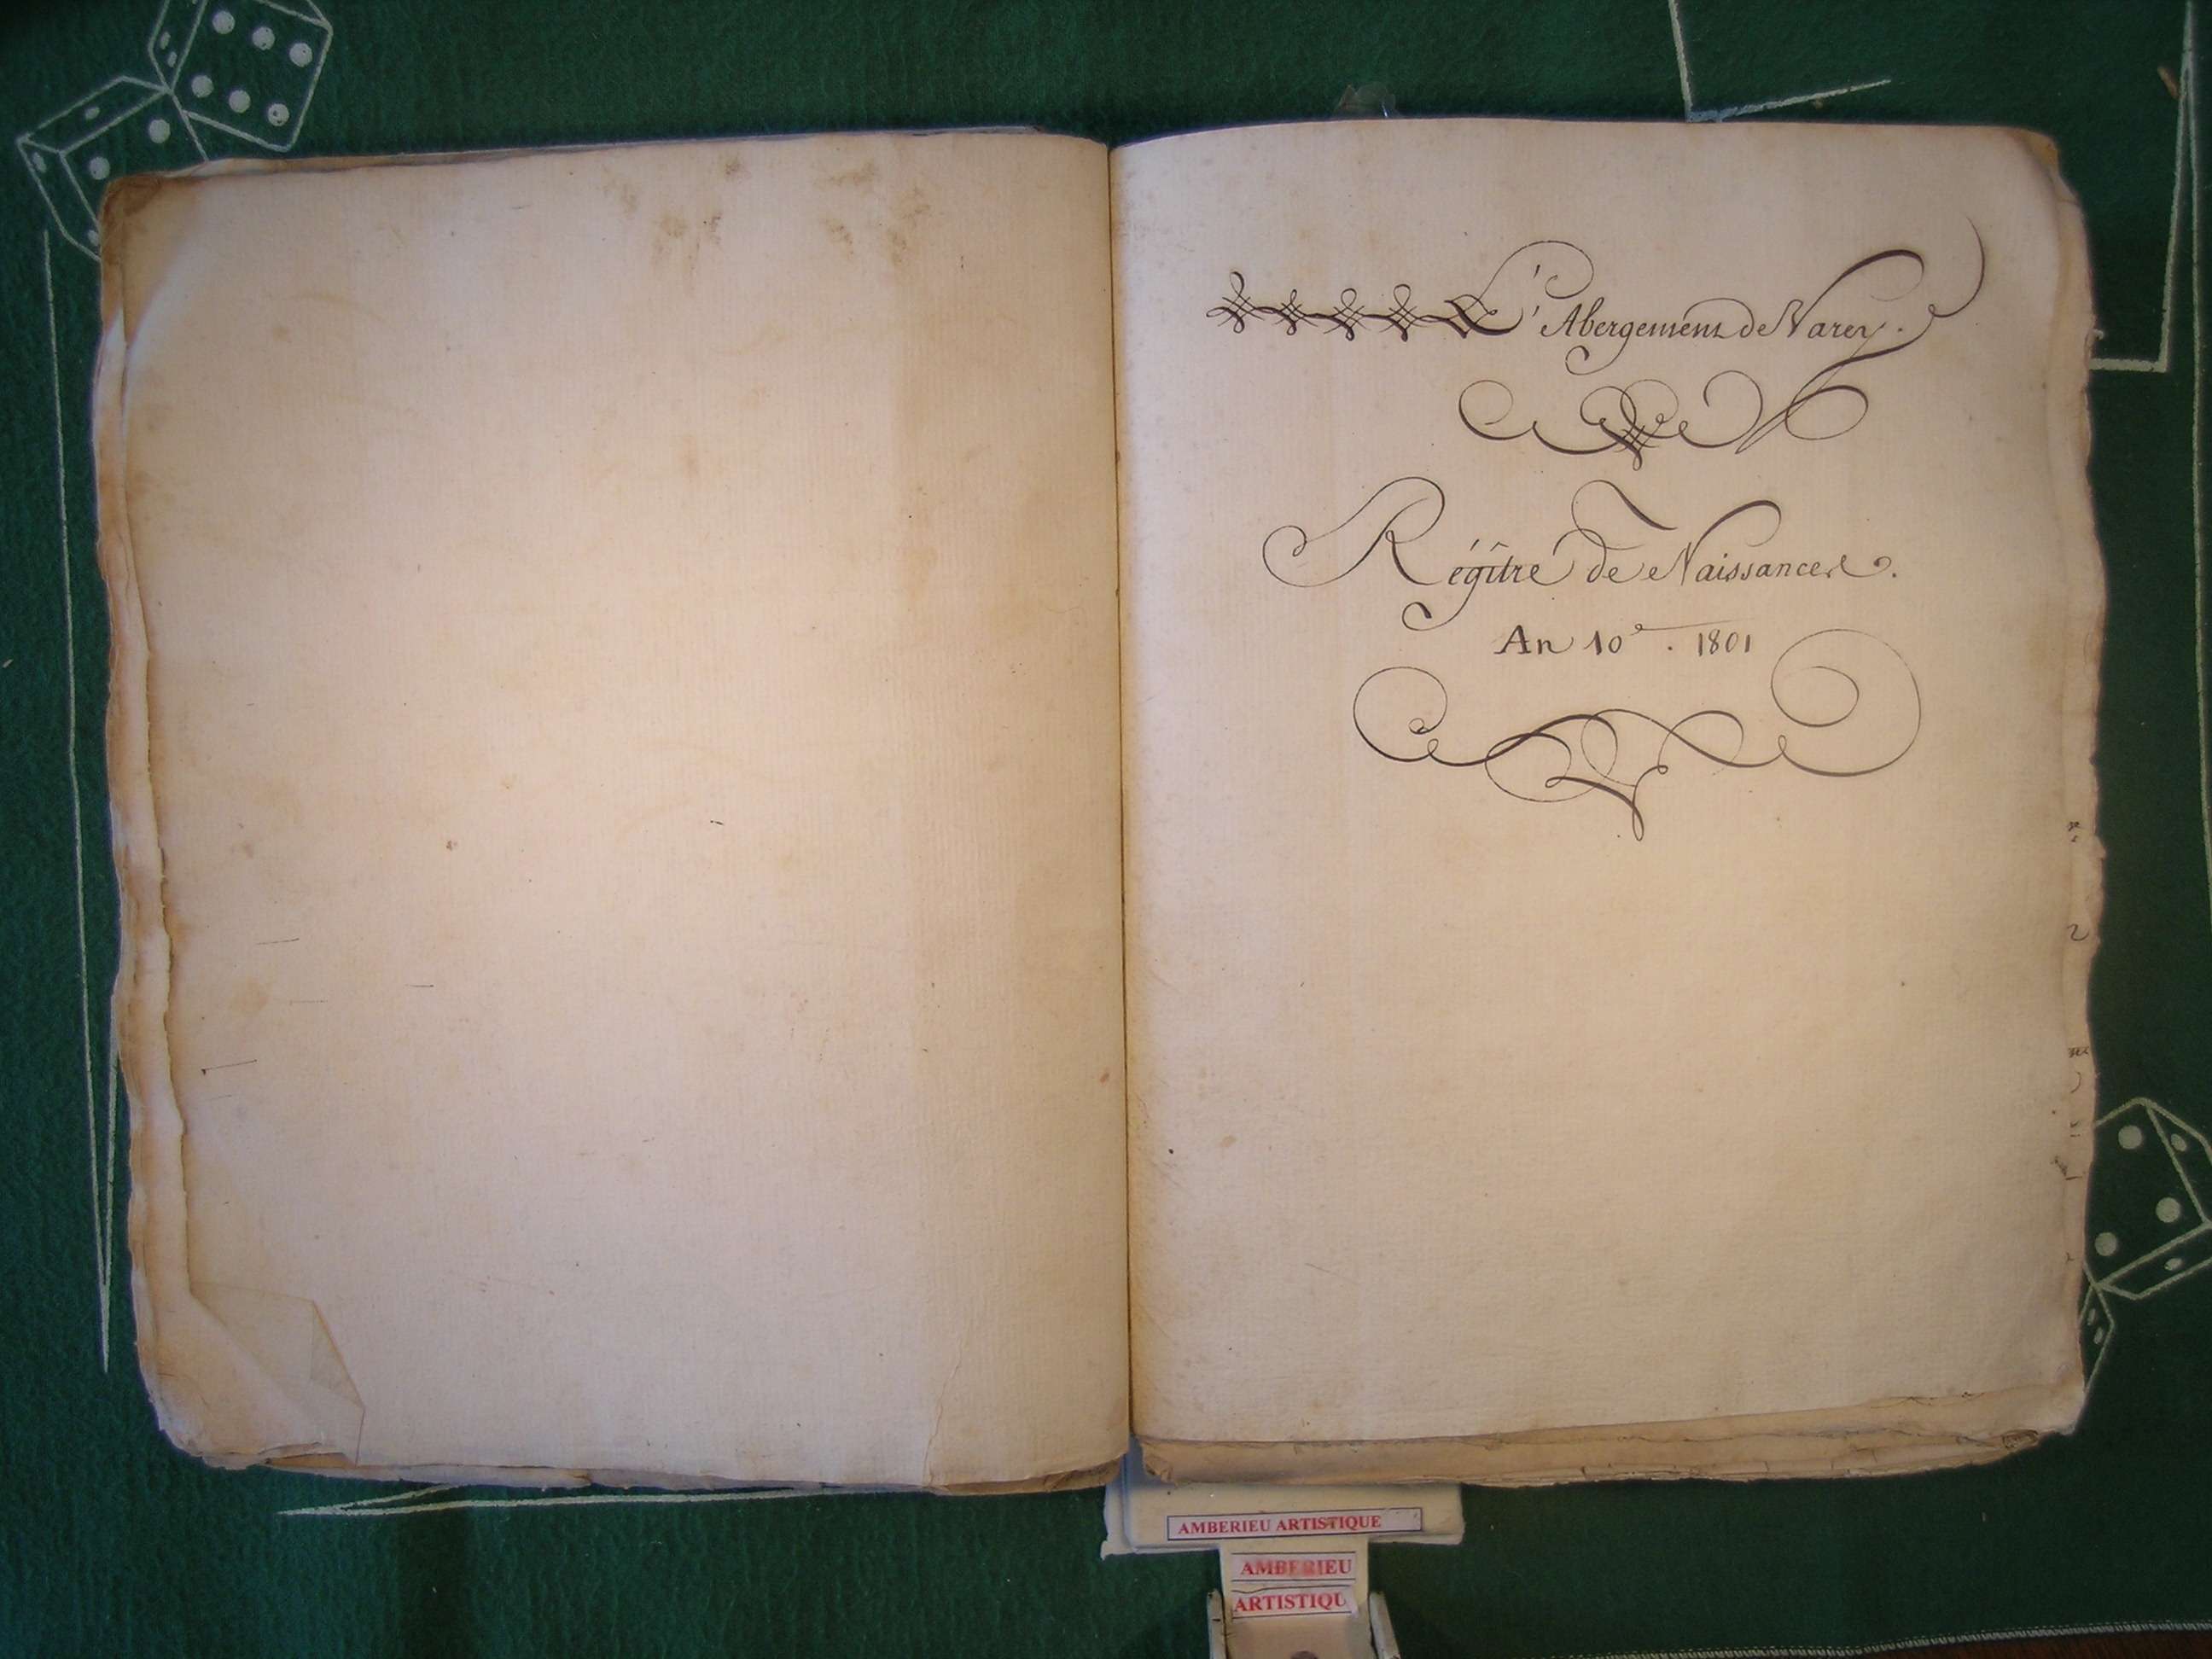 L'Abergement de Varey.
Régître de Naissances.
An 10e. 1801
AMBERIEU ARTISTIQUE
AMBERIEU
ARTISTIQU